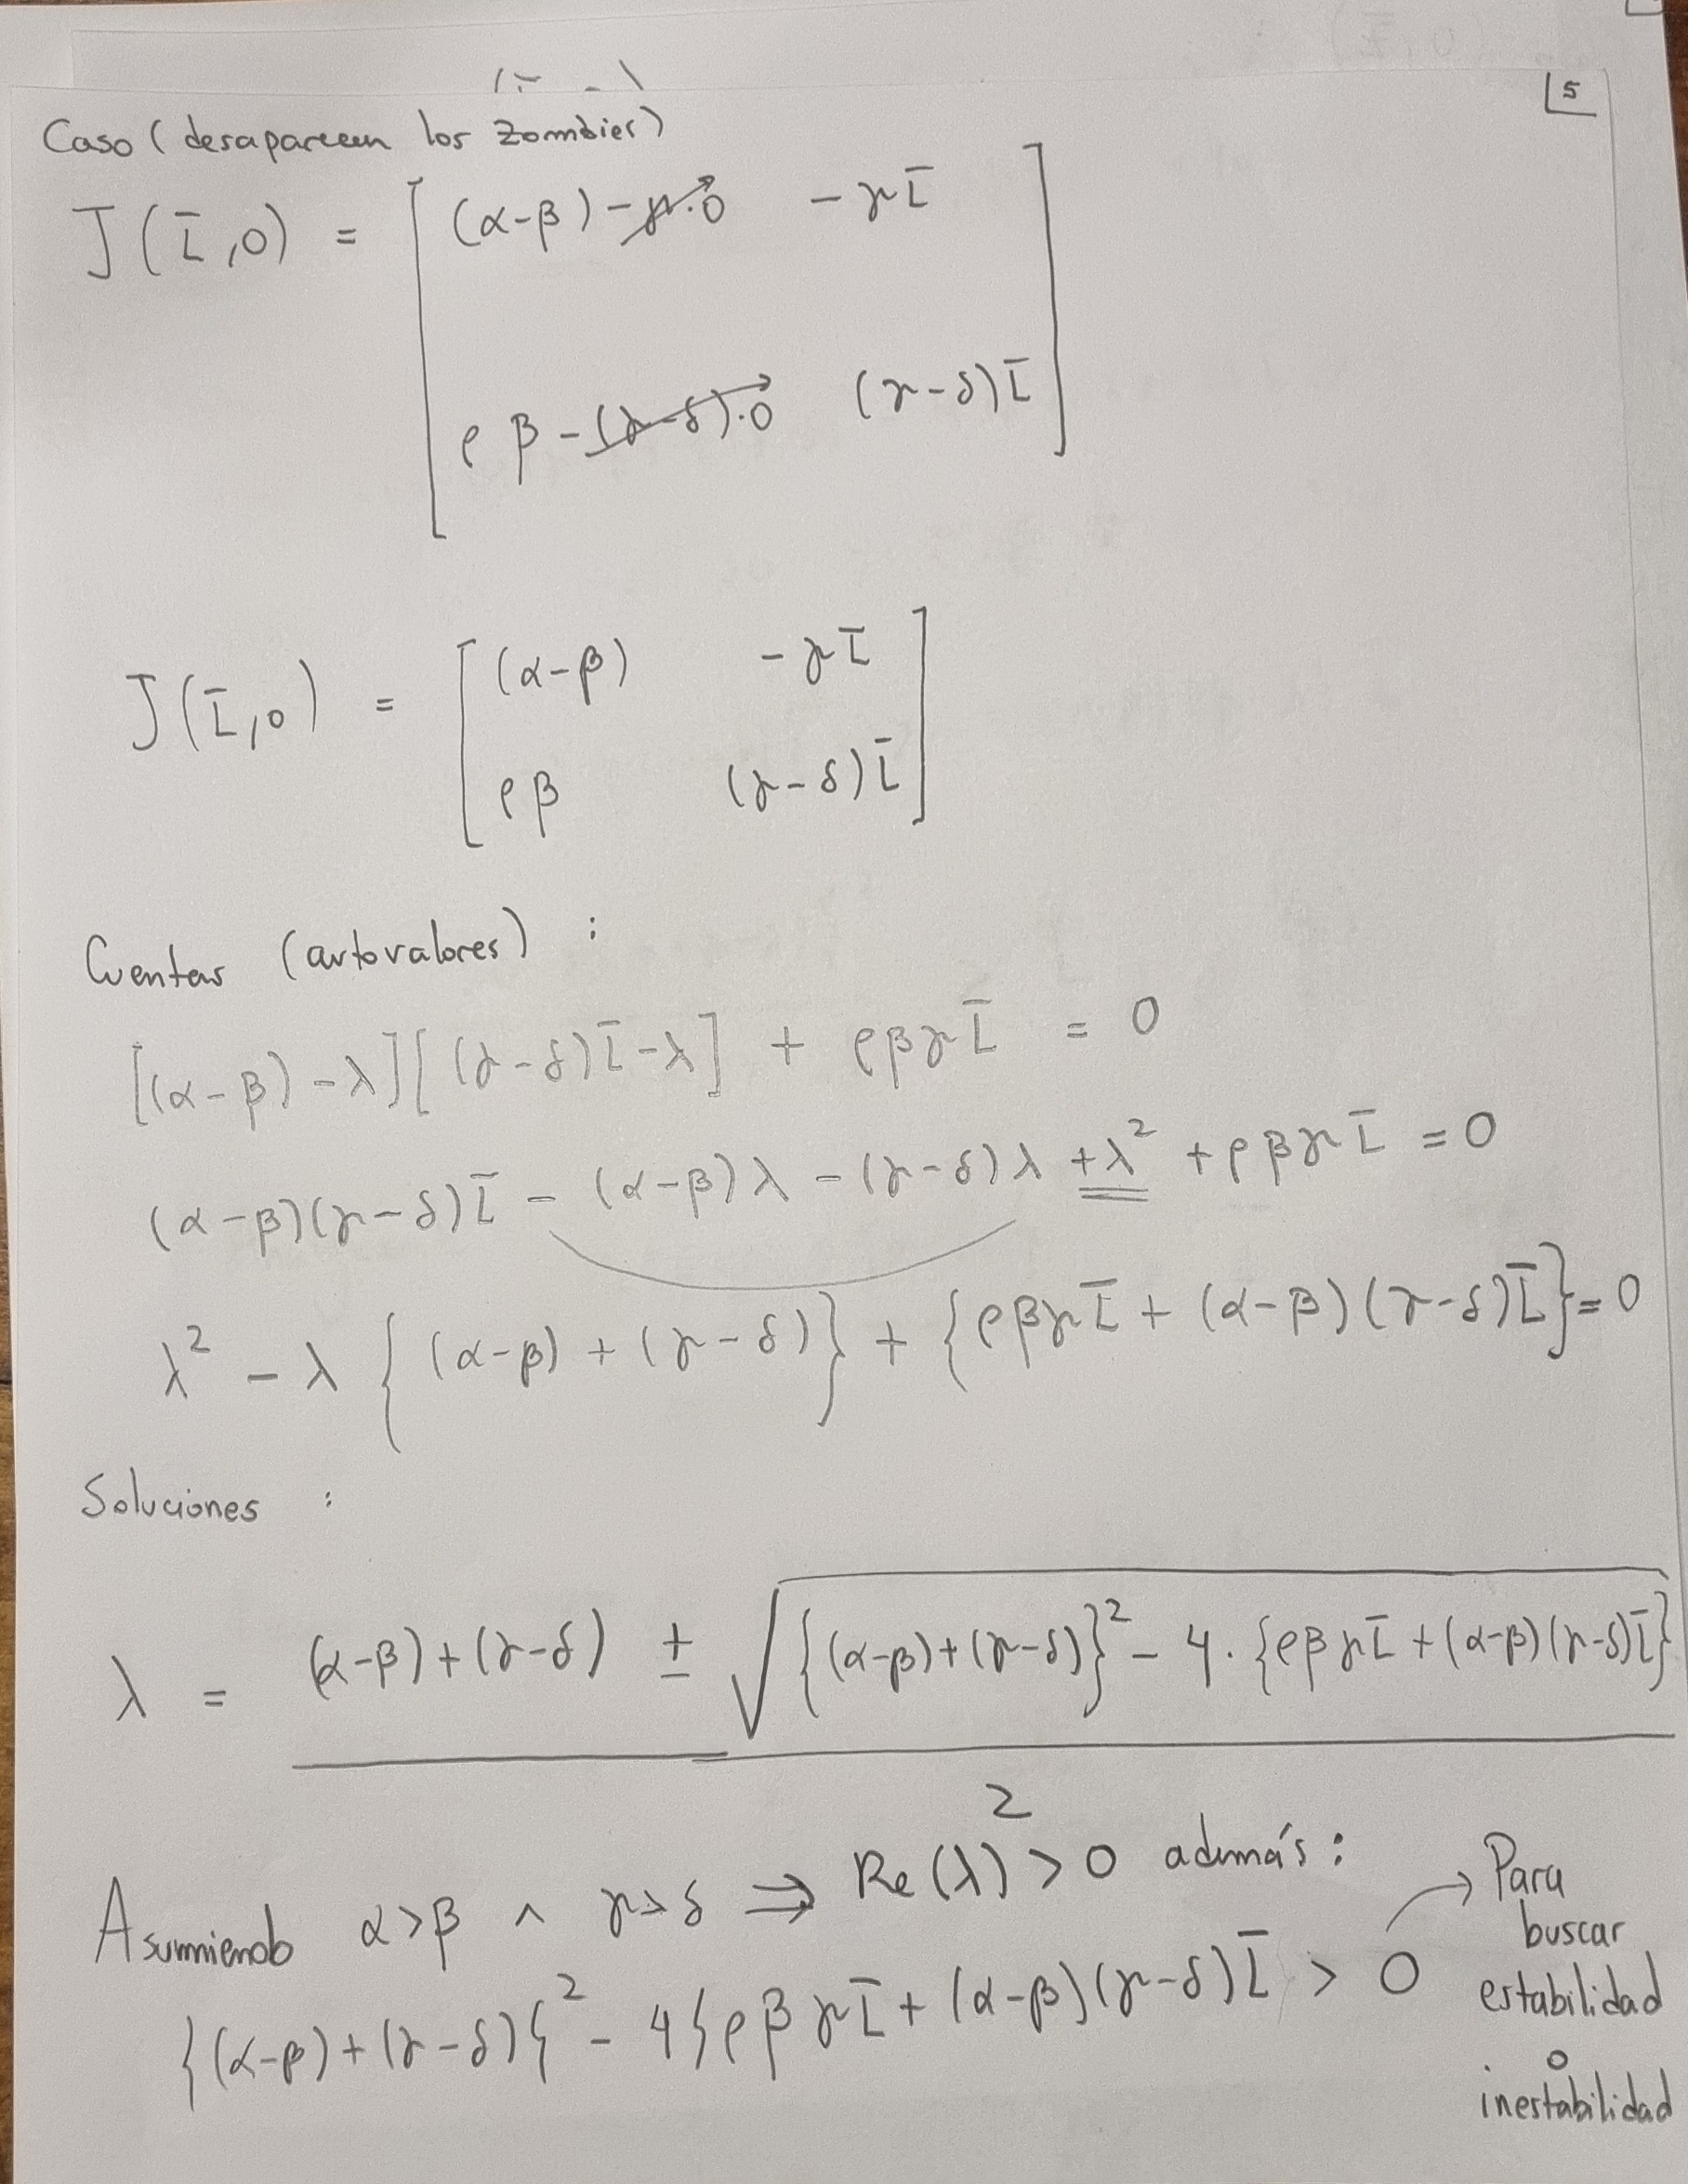 5
Caso (desaparecen los Zombies)
J(L̄,0) = [ (α-β) - γ·0   - γL̄
ρβ - (γ-δ)·0   (γ-δ)L̄ ]
J(L̄,0) = [ (α-β)   - γL̄
ρβ   (γ-δ)L̄ ]
Cuentas (autovalores) :
[(α-β) - λ][(γ-δ)L̄ - λ] + ρβγL̄ = 0
(α-β)(γ-δ)L̄ - (α-β)λ - (γ-δ)λ + λ² + ρβγL̄ = 0
λ² - λ {(α-β) + (γ-δ)} + {ρβγL̄ + (α-β)(γ-δ)L̄} = 0
Soluciones :
λ = (α-β)+(γ-δ) ± √{(α-β)+(γ-δ)}² - 4·{ρβγL̄ + (α-β)(γ-δ)L̄}
2
Asumiendo α>β ∧ γ>δ ⇒ Re(λ) > 0 además:
{(α-β)+(γ-δ)}² - 4{ρβγL̄ + (α-β)(γ-δ)L̄ > 0
→ Para
buscar
estabilidad
o
inestabilidad